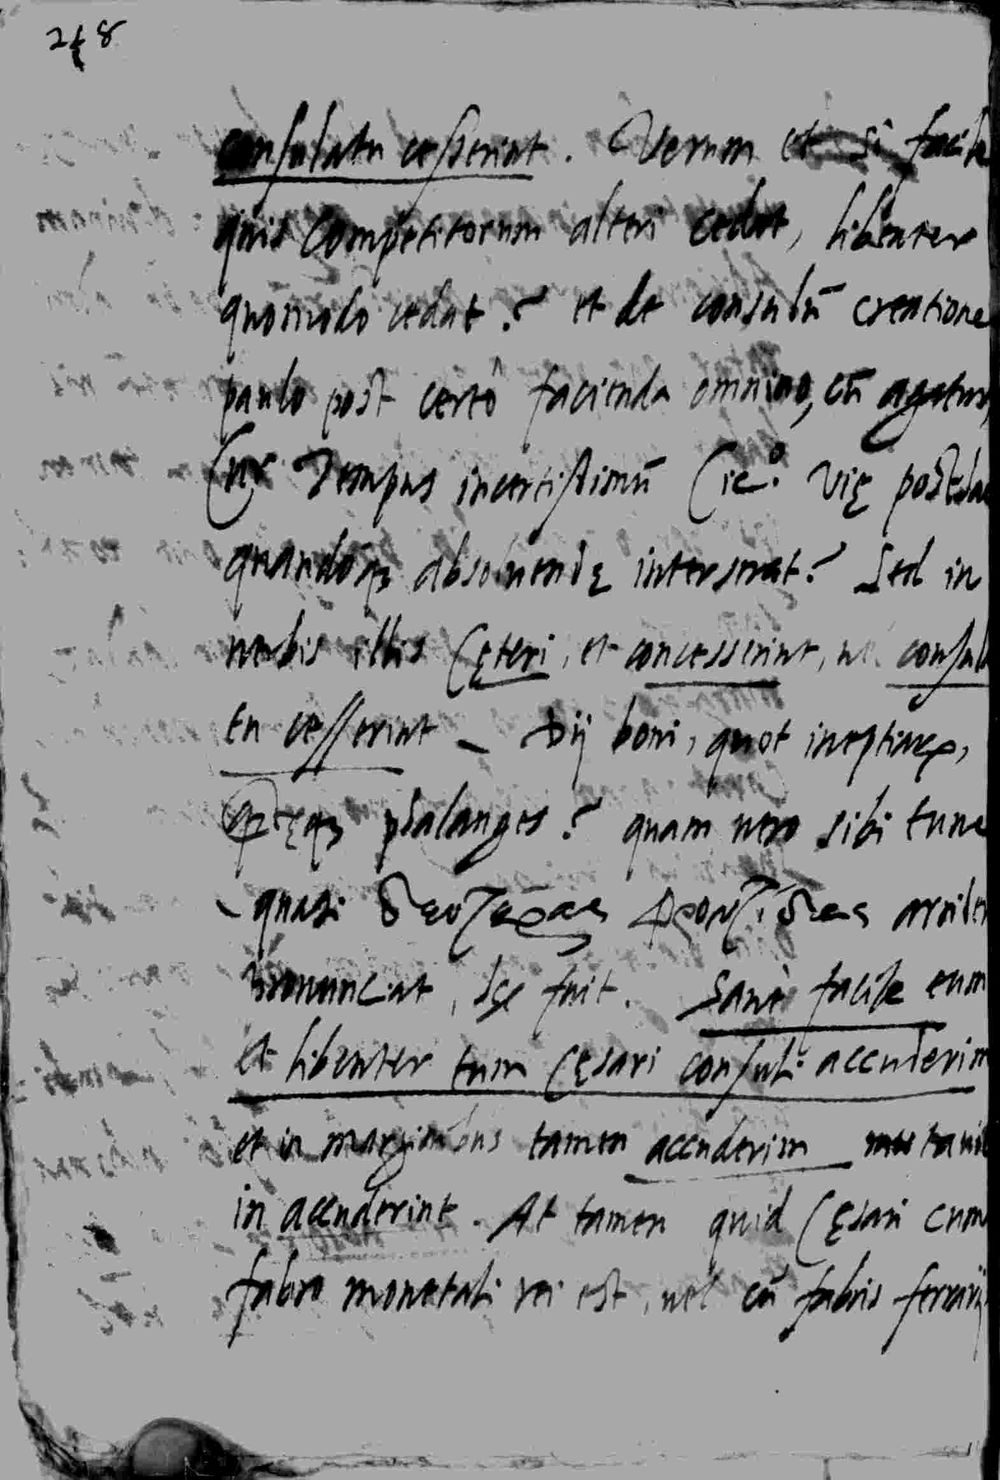 248
consulatu cesserint. Verum et si facile
quis Competitorum alteri cedat, libenter
quomodo cedat? et de consulū creatione
paulo post certò facienda omnino, cū agatur,
Tempus incertissimū Cic.º vię
quandoq; absoluendę interserat? Sed in
uerbis illis Cęteri, et concesserint, uel consula
tu cesserint _ Dij boni, quot ineptiaeq,
phalanges? quam uero sibi tunc
quasi δευτέρας φροντίδας
fuit. Sanè facile eum
et libenter tum Cęsari consuli accuderim
et in marginibus tamen accuderim
in accuderint. At tamen quid Cęsari cum
fabro monetali rei est, uel cū fabris ferrarijs